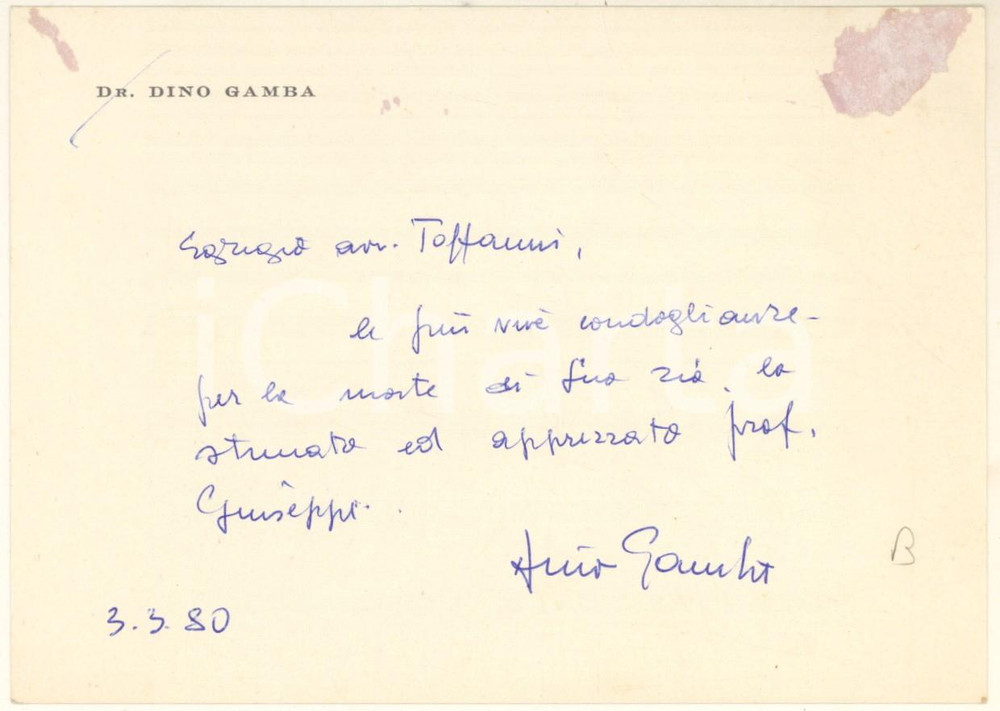 DR. DINO GAMBA
Egregio avv. Toffanin,
le più vive condoglianze
per la morte di Suo zio, lo
stimato ed apprezzato prof.
Giuseppe.
Dino Gamba
B
3.3.80
iCharta